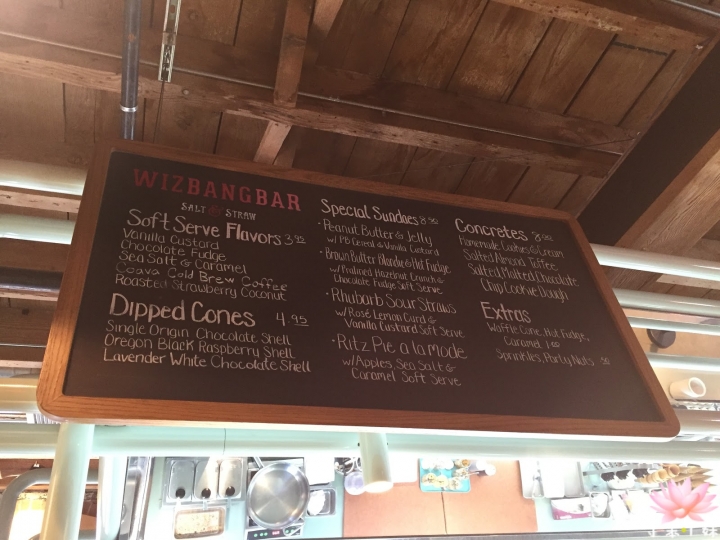 WIZBANGBAR
SALT & STRAW
Soft Serve Flavors 3.95
Vanilla Custard
Chocolate Fudge
Sea Salt & Caramel
Coava Cold Brew Coffee
Roasted Strawberry Coconut
Dipped Cones 4.95
Single Origin Chocolate Shell
Oregon Black Raspberry Shell
Lavender White Chocolate Shell
Special Sundaes 8.90
• Peanut Butter & Jelly
w/ PB Cereal & Vanilla Custard
• Brown Butter Blondie & Hot Fudge
w/ Pralined Hazelnut Crunch &
Chocolate Fudge Soft Serve
• Rhubarb Sour Straws
w/ Rosé Lemon Curd &
Vanilla Custard Soft Serve
• Ritz Pie a la mode
w/ Apples, Sea Salt &
Caramel Soft Serve
Concretes
Homemade Cookies & Cream
Salted Almond Toffee
Salted Malted Chocolate
Chip Cookie Dough
Extras
Waffle Cone, Hot Fudge,
Caramel 1.00
Sprinkles, Party Nuts .50